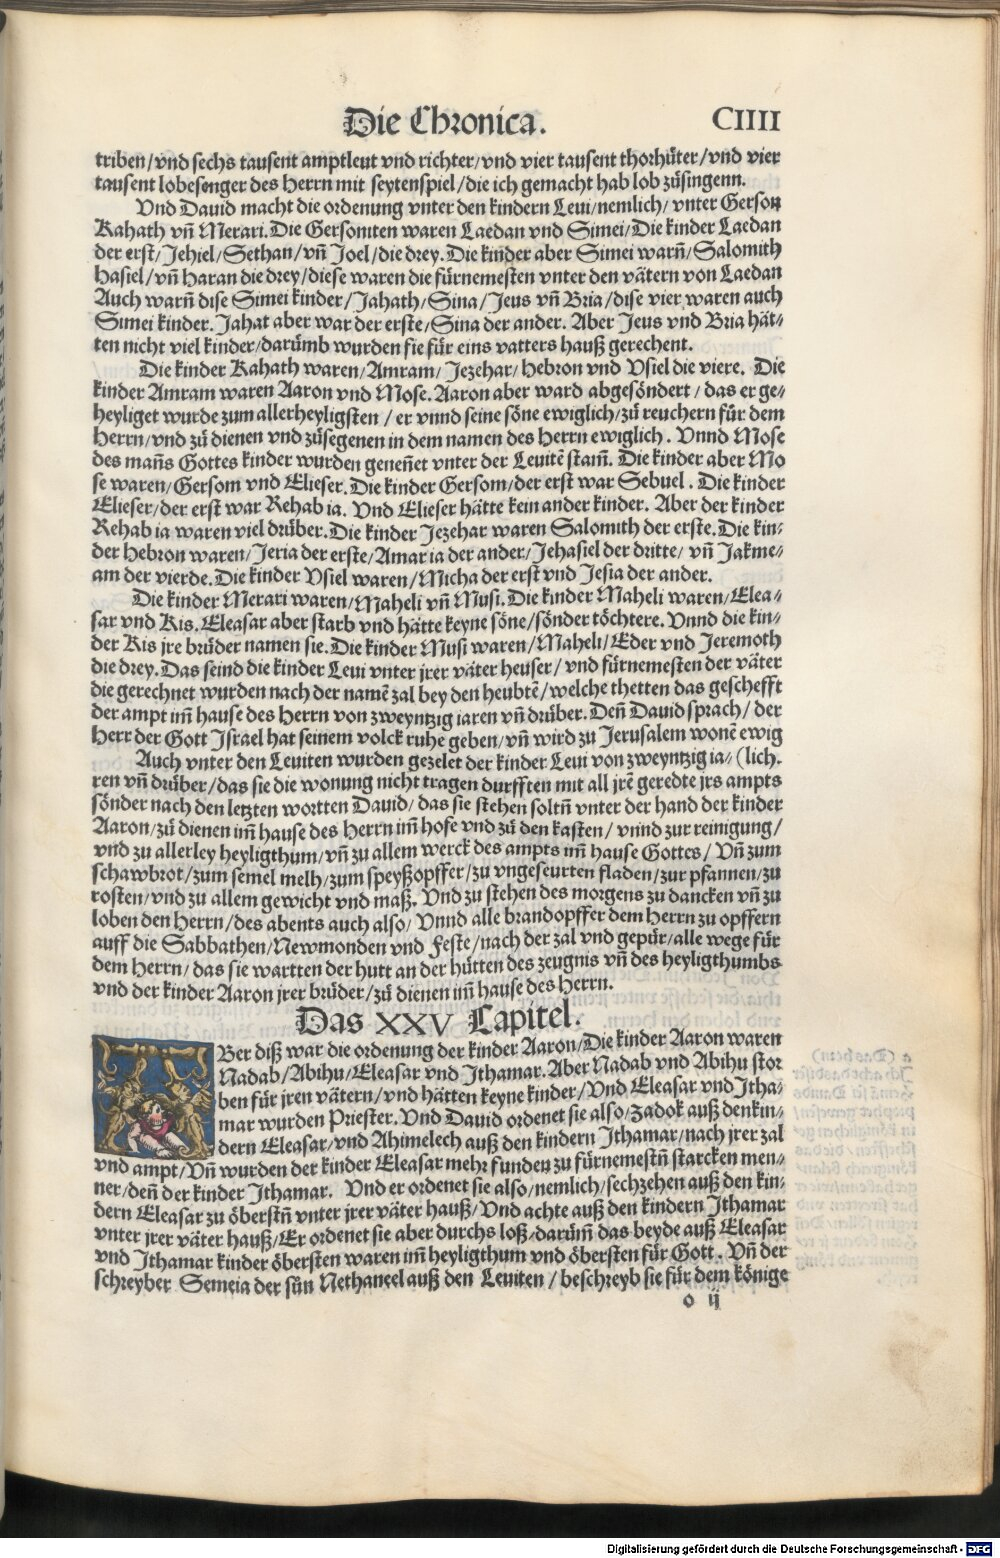 Die Chronica. CIIII
triben/vnd sechs tausent amptleut vnd richter/vnd vier tausent thorhüter/vnd vier
tausent lobesenger des Herrn mit seytenspiel/die ich gemacht hab lob zůsingenn.
Vnd Dauid macht die ordenung vnter den kindern Leui/nemlich/vnter Gerson
Kahath vñ Merari. Die Gersoniten waren Laedan vnd Simei/Die kinder Laedan
der erst/Jehiel/Sethan/vñ Joel/die drey. Die kinder aber Simei warñ/Salomith
Hasiel/vñ Haran die drey/diese waren die fürnemesten vnter den vätern von Laedan
Auch warñ dise Simei kinder/Jahath/Sina/Jeus vñ Bria/dise vier waren auch
Simei kinder. Jahat aber war der erste/Sina der ander. Aber Jeus vnd Bria hät-
ten nicht viel kinder/darümb wurden sie für eins vatters hauß gerechent.
Die kinder Kahath waren/Amram/Jezehar/Hebron vnd Vsiel die viere. Die
kinder Amram waren Aaron vnd Mose. Aaron aber ward abgesöndert/das er ge-
heyliget wurde zum allerheyligsten/er vnnd seine söne ewiglich/zů reuchern für dem
Herrn/vnd zů dienen vnd zůsegenen in dem namen des Herrn ewiglich. Vnnd Mose
des mañs Gottes kinder wurden geneñet vnter der Leuitẽ stam̃. Die kinder aber Mo
se waren/Gersom vnd Elieser. Die kinder Gersom/der erst war Sebuel. Die kinder
Elieser/der erst war Rehab ia. Vnd Elieser hätte kein ander kinder. Aber der kinder
Rehab ia waren viel drüber. Die kinder Jezehar waren Salomith der erste. Die kin-
der Hebron waren/Jeria der erste/Amar ia der ander/Jehasiel der dritte/vñ Jakme-
am der vierde. Die kinder Vsiel waren/Micha der erst vnd Jesia der ander.
Die kinder Merari waren/Maheli vñ Musi. Die kinder Maheli waren/Elea-
sar vnd Kis. Eleasar aber starb vnd hätte keyne söne/sönder töchtere. Vnnd die kin-
der Kis jre brüder namen sie. Die kinder Musi waren/Maheli/Eder vnd Jeremoth
die drey. Das seind die kinder Leui vnter jrer väter heuser/vnd fürnemesten der väter
die gerechnet wurden nach der namẽ zal bey den heubtẽ/welche thetten das geschefft
der ampt im̃ hause des Herrn von zweyntzig iaren vñ drüber. Deñ Dauid sprach/der
Herr der Gott Israel hat seinem volck ruhe geben/vñ wird zu Jerusalem wonẽ ewig
Auch vnter den Leuiten wurden gezelet der kinder Leui von zweyntzig ia- (lich.
ren vñ drüber/das sie die wonung nicht tragen durfften mit all jrẽ geredte jrs ampts
sönder nach den letzten wortten Dauid/das sie stehen soltñ vnter der hand der kinder
Aaron/zů dienen im̃ hause des Herrn im̃ hofe vnd zů den kasten/vnnd zur reinigung/
vnd zu allerley heyligthum/vñ zu allem werck des ampts im̃ hause Gottes/Vñ zum
schawbrot/zum semel melh/zum speyßopffer/zu vngeseurten fladen/zur pfannen/zu
rosten/vnd zu allem gewicht vnd maß. Vnd zu stehen des morgens zu dancken vñ zu
loben den Herrn/des abents auch also/Vnnd alle brandopffer dem Herrn zu opffern
auff die Sabbathen/Newmonden vnd Feste/nach der zal vnd gepür/alle wege für
dem Herrn/das sie wartten der hutt an der hütten des zeugnis vñ des heyligthumbs
vnd der kinder Aaron jrer brüder/zů dienen im̃ hause des Herrn.
Das XXV Capitel.
Ber diß war die ordenung der kinder Aaron/Die kinder Aaron waren
Nadab/Abihu/Eleasar vnd Ithamar. Aber Nadab vnd Abihu stor
ben für jren vätern/vnd hätten keyne kinder/Vnd Eleasar vnd Itha-
mar wurden Priester. Vnd Dauid ordenet sie also/Zadok auß denkin-
dern Eleasar/vnd Ahimelech auß den kindern Ithamar/nach jrer zal
vnd ampt/Vñ wurden der kinder Eleasar mehr funden zu fürnemestñ starcken men-
ner/deñ der kinder Ithamar. Vnd er ordenet sie also/nemlich/sechzehen auß den kin-
dern Eleasar zu öberstñ vnter jrer väter hauß/Vnd achte auß den kindern Ithamar
vnter jrer väter hauß/Er ordenet sie aber durchs loß/darüm̃ das beyde auß Eleasar
vnd Ithamar kinder öbersten waren im̃ heyligthum vnd öbersten für Gott. Vñ der
schreyber Semeia der sün Nethaneel auß den Leuiten/beschreyb sie für dem könige
o ij
Digitalisierung gefördert durch die Deutsche Forschungsgemeinschaft - DFG